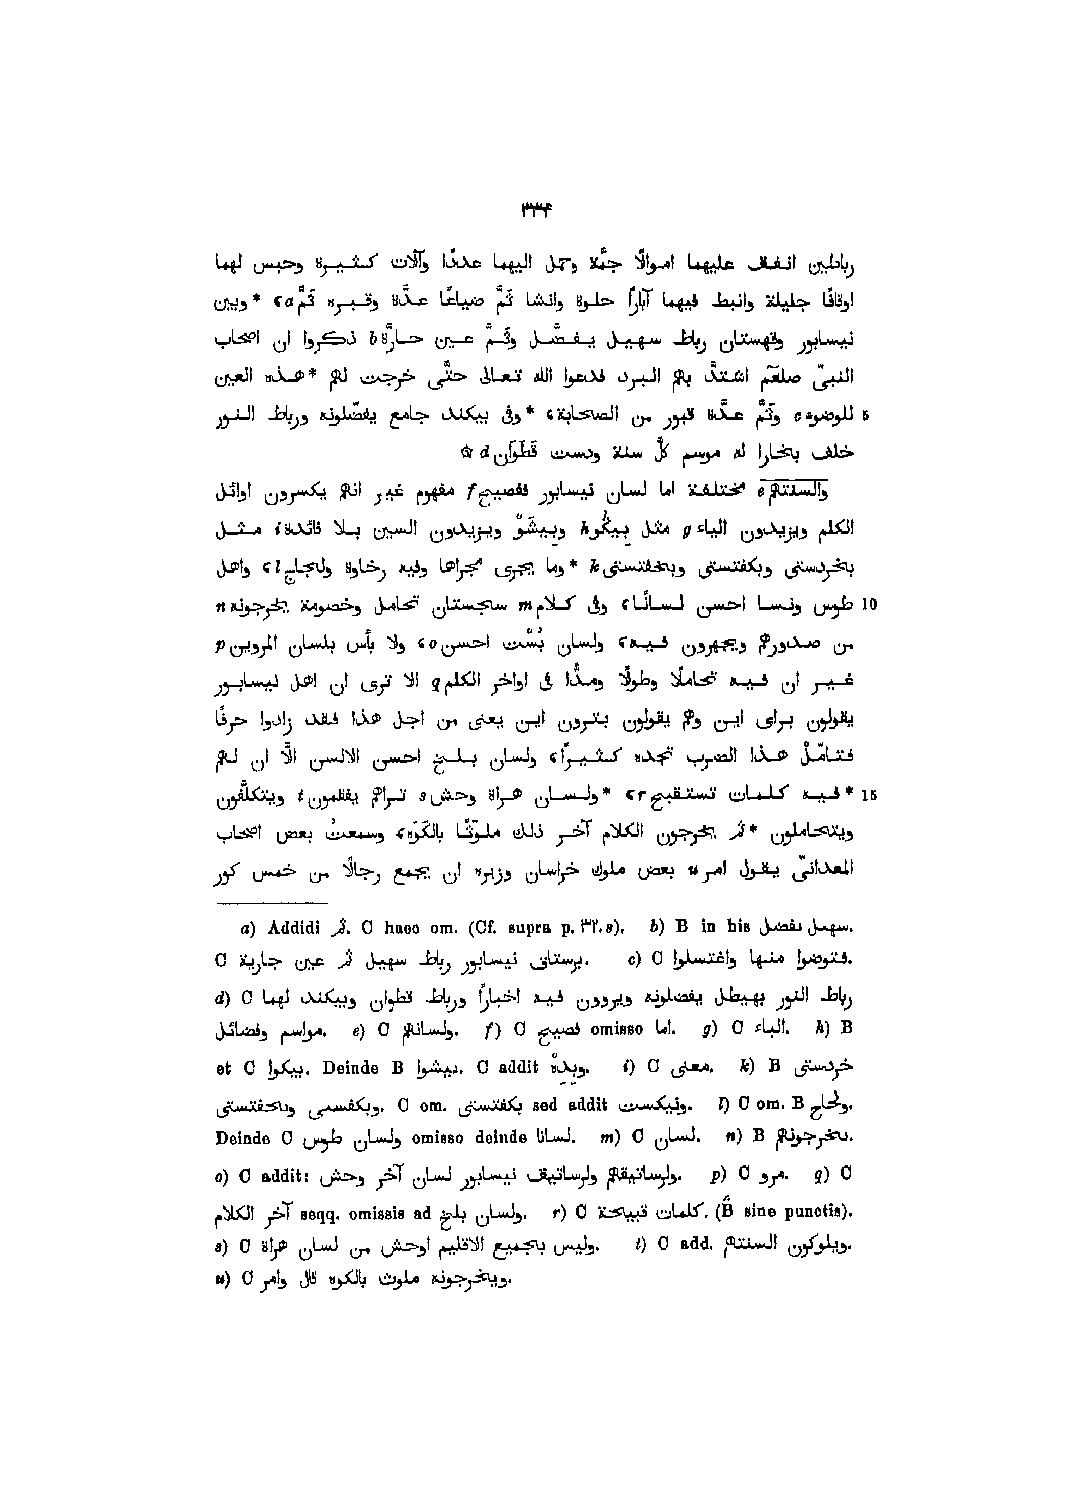 ٣٣٤
رباطين انفق عليهما اموالًا جمَّة وحمل اليهما عددًا وآلات كثيرة وحبس لهما
اوقافًا جليلة وانبط فيهما آبارًا حلوة وانشا ثَمَّ ضياعًا عدَّة وقبره ثَمَّ a c* وبين
نيسابور وقهستان رباط سهيل يفضَّل وثَمَّ عين حارَّة b ذكروا ان اصحاب
النبىّ صلعم اشتدَّ بهم البرد فدعوا الله تعالى حتَّى خرجت لهم *هذه العين
5 للوضوء c وثَمَّ عدَّة قبور من الصحابة c *وفى بيكند جامع يفضّلونه ورباط النور
خلف بخارا له موسم كلّ سنة ودست قَطَوَان d ۞
والسنتهم e مختلفة اما لسان نيسابور ففصيح f مفهوم غير انهم يكسرون اوائل
الكلم ويزيدون الياء g مثل بِيگُو h وبِيشَوْ ويزيدون السين بلا فائدة i مثل
بخردستى وبكفتستى وبخفتستى k *وما يجرى مجراها وفيه رخاوة ولجاج l c واهل
10 طوس ونسا احسن لسانًا c وفى كلام m سجستان تحامل وخصومة يخرجونه n
من صدورهم ويجهرون فيه c ولسان بُسْت احسن o c ولا بأس بلسان المروين p
غير ان فيه تحاملًا وطولًا ومدًّا فى اواخر الكلم q الا ترى ان اهل نيسابور
يقولون براى اين وهم يقولون بترون اين يعنى من اجل هذا فقد زادوا حرفًا
فتأمَّلْ هذا الضرب تجده كثيرًا c ولسان بلخ احسن الالسن الَّا ان لهم
15 *فيه كلمات تستقبح r c *ولسان هراة وحش s تراهم يفلمون t ويتكلَّفون
ويتحاملون *ثم يخرجون الكلام آخر ذلك ملوّثًا بالكَوَه c وسمعتُ بعض اصحاب
المعدانىّ يقول امر u بعض ملوك خراسان وزيره ان يجمع رجالًا من خمس كور
a) Addidi ثم. C haec om. (Cf. supra p. ٣٢٠, s). b) B in his سهيل نفضل.
C برستاق نيسابور رباط سهيل ثم عين جارية. c) C فتوضوا منها واغتسلوا.
d) C رباط النور بهيطل يفضلونه ويروون فيه اخبارًا ورباط قطوان وبيكند لهما
مواسم وفضائل. e) C ولسانهم. f) C فصيح omisso اما. g) C الباء. h) B
et C بيكوا. Deinde B بيشوا. C addit وبِدِهْ. i) C معنى. k) B خردستى
وبكفسى وبحفتستى. C om. بكفتستى sed addit ونيكست. l) C om. B ولحاج.
Deinde C ولسان طوس omisso deinde لسانا. m) C لسان. n) B بخرجونهم.
o) C addit: ولرساتيقهم ولرساتيق نيسابور لسان آخر وحش. p) C مرو. q) C
آخر الكلام seqq. omissis ad ولسان بلخ. r) C كلمات قبيحة. (B sine punctis).
s) C وليس بجميع الاقليم اوحش من لسان هراة. t) C add. ويلوكون السنتهم.
u) C ويخرجونه ملوث بالكوه قال وامر.